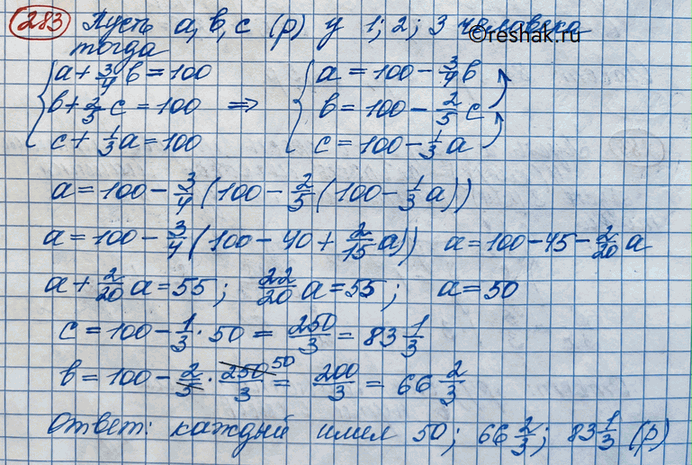 283 Пусть a, b, c (р) у 1; 2; 3 человека
©reshak.ru
тогда
a + 3/4 b = 100     a = 100 - 3/4 b
b + 2/5 c = 100  ⇒  b = 100 - 2/5 c
c + 1/3 a = 100     c = 100 - 1/3 a
a = 100 - 3/4 (100 - 2/5 (100 - 1/3 a))
a = 100 - 3/4 (100 - 40 + 2/15 a))  a = 100 - 45 - 2/20 a
a + 2/20 a = 55; 22/20 a = 55; a = 50
c = 100 - 1/3 · 50 = 250/3 = 83 1/3
b = 100 - 2/5 · 250/3 50 = 200/3 = 66 2/3
Ответ: каждый имел 50; 66 2/3; 83 1/3 (р)